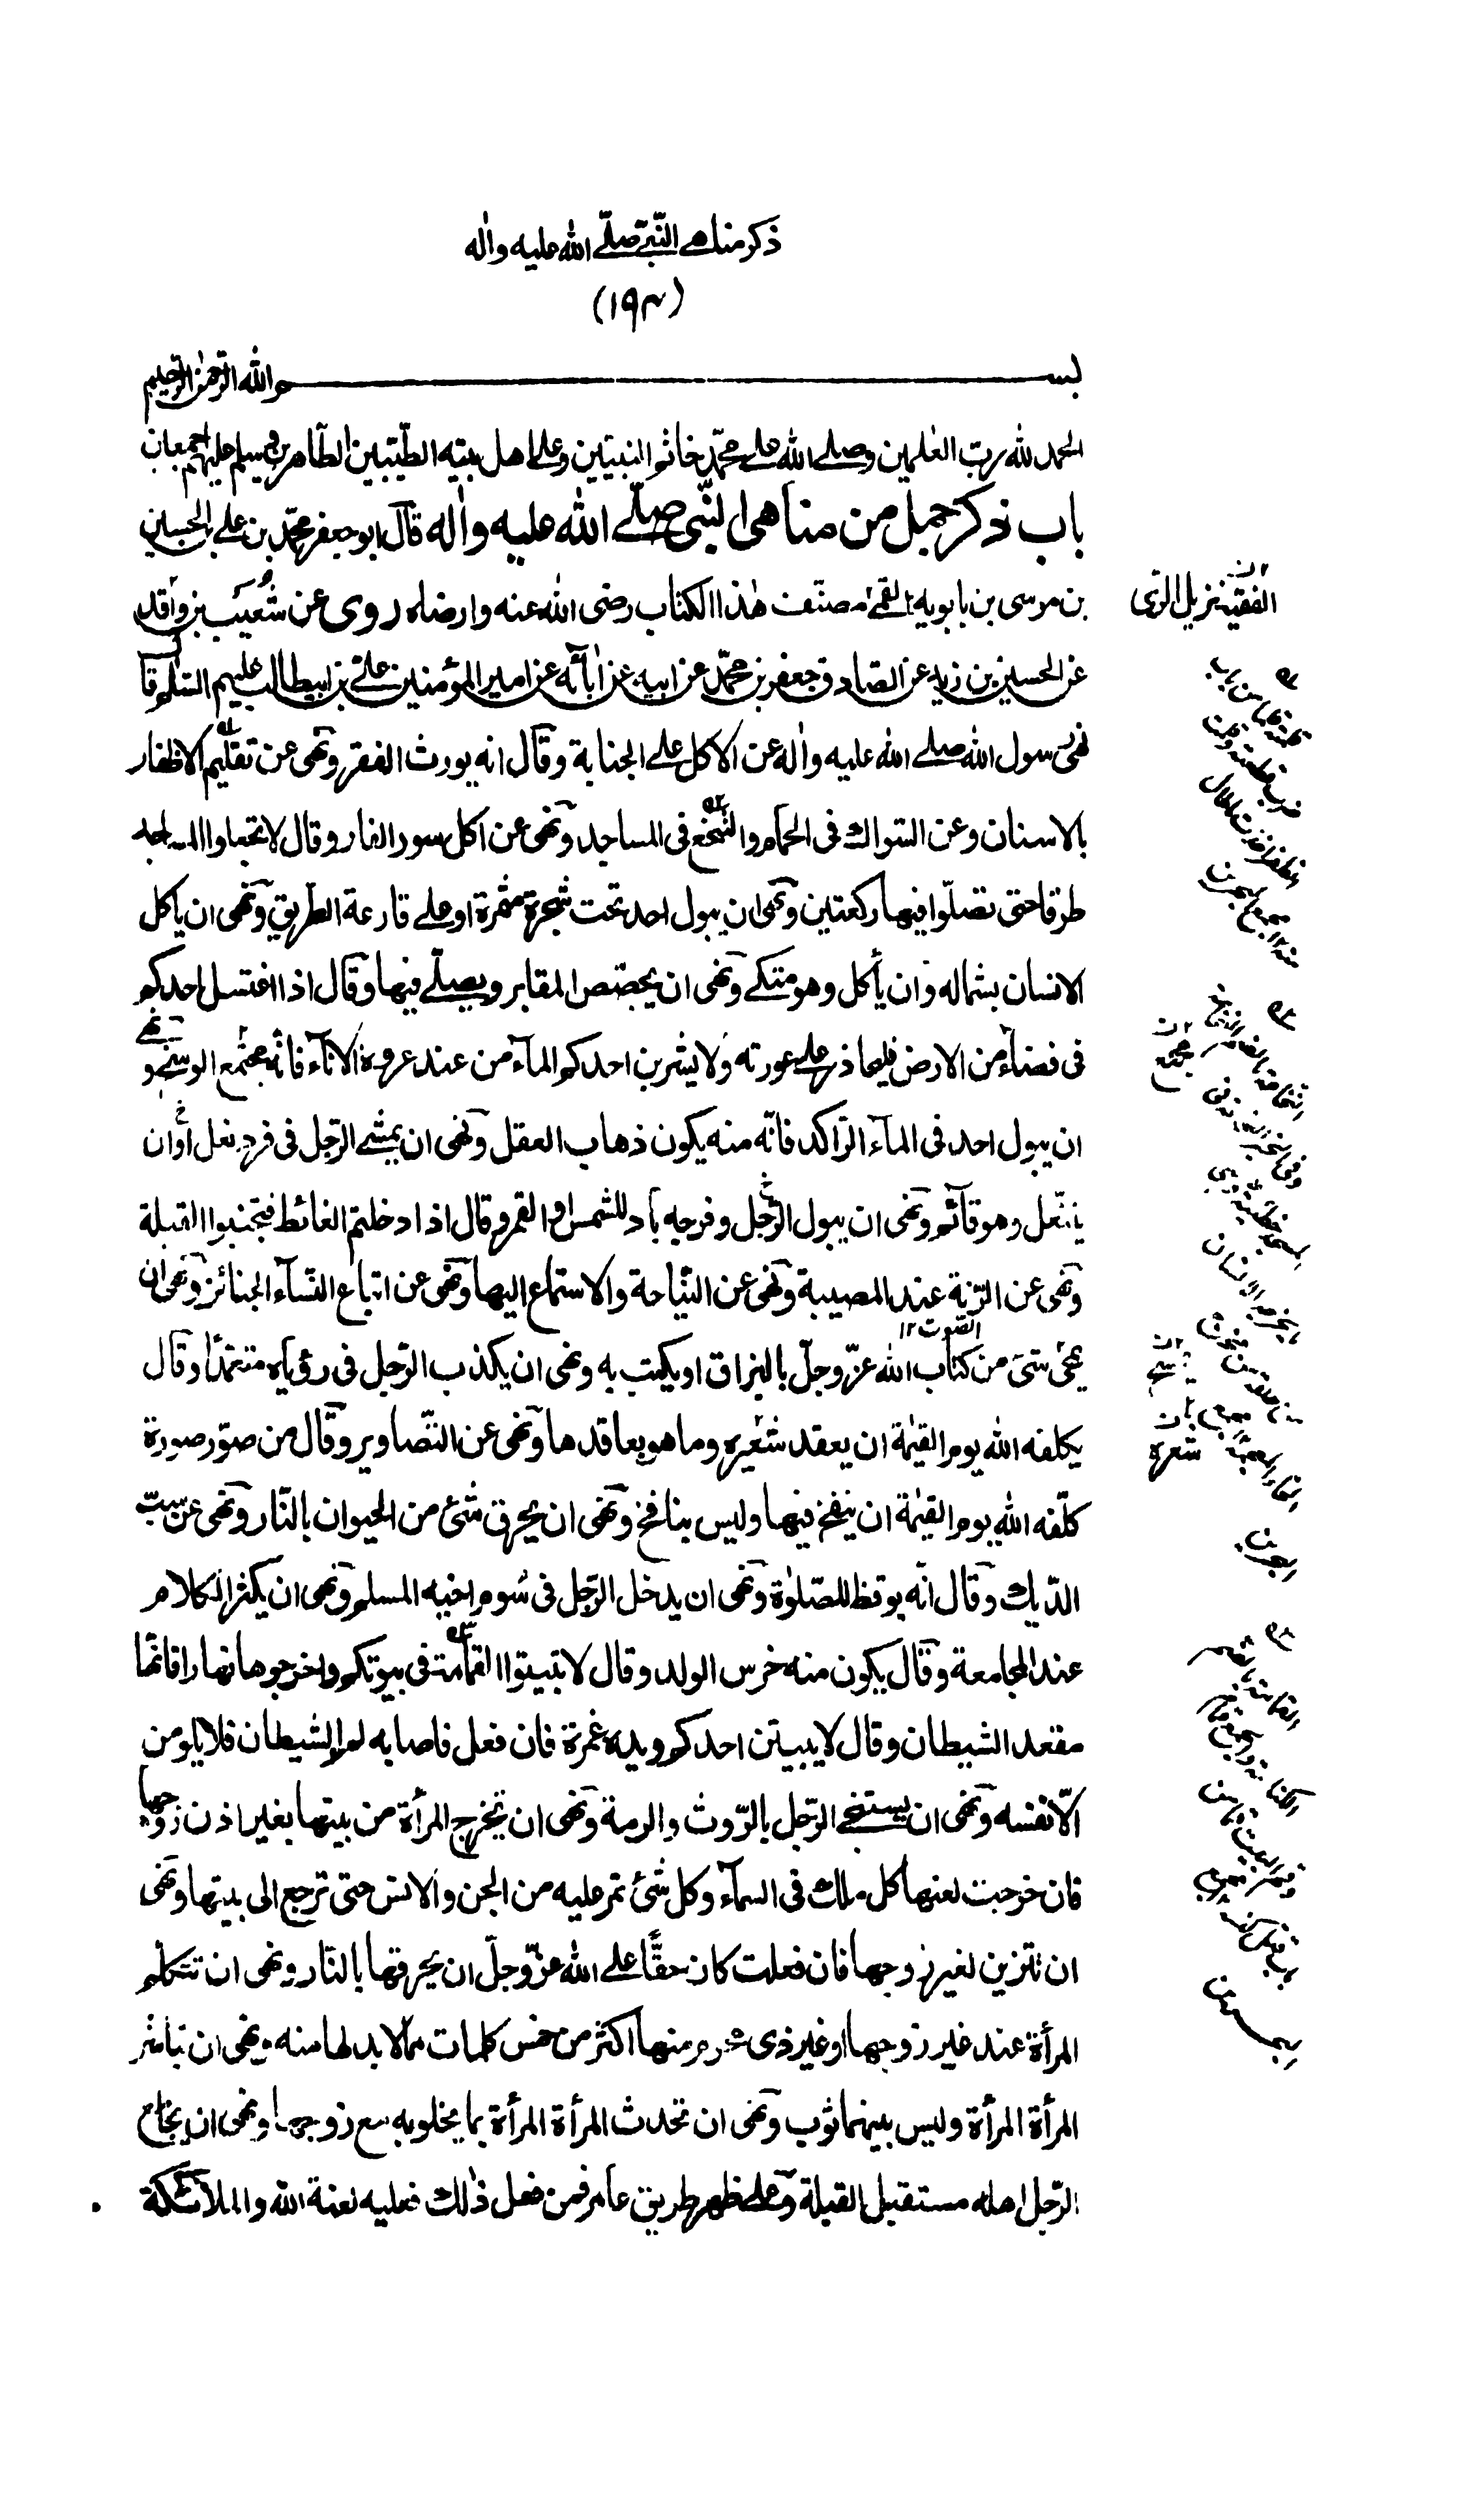 ذكر مناهى النّبىّ صلّى الله عليه واٰله
(١٩٣)
بسم الله الرّحمٰن الرّحيم
الحمد لله ربّ العٰلمين وصلى الله على محمّد خاتم النبيّين وعلى اهل بيته الطّيّبين الطّاهرين وسلم عليهم اجمعين
باب ذكر جمل من مناهى النّبى صلّى الله عليه واٰله قال ابو جعفر محمّد بن على بن الحسين
بن موسى بن بابويه القمى مصنّف هٰذا الكتاب رضى الله عنه وارضاه روى عن شُعَيْب بن واقد
الفقيه نزيل الرّى
عن الحسين بن زيد عن الصّادق جعفر بن محمّد عن ابيه عن اٰبآئه عن امير المؤمنين علىّ بن ابيطالب عليهم السّلم قال
نهى رسول الله صلى الله عليه واٰله عن الاكل على الجنابة وقال انه يورث الفقر ونهى عن تقليم الاظفار
بالاسنان وعن السّواك فى الحمّام والتنخّع فى المساجد ونهى عن اكل سور الفار وقال لا تجعلوا المساجد
طرقا حتى تصلّوا فيها ركعتين ونهى ان يبول احد تحت شجرة مثمرة او على قارعة الطّريق ونهى ان ياكل
الانسان بشماله وان يأكل وهو متكى ونهى ان يجصّص المقابر ويصلّى فيها وقال اذا اغتسل احدكم
فى فضآء من الارض فليحاذر على عورته ولا يشربن احدكم المآء من عند عروة الانآء فانّه مجتمع الوسخ ونهى
مجمع
ان يبول احد فى المآء الرّاكد فانّه منه يكون ذهاب العقل ونهى ان يمشى الرّجل فى فرد نعل او ان
يتنعّل وهو قآئم ونهى ان يبول الرّجل وفرجه باد للشمس او القمر وقال اذا دخلتم الغائط فتجنبوا القبلة
ونهى عن الرّنة عند المصيبة ونهى عن النّياحة والاستماع اليها ونهى عن اتباع النّسآء الجنائز ونهى ان
الصّوت ١٢
يمحى شىء من كتاب الله عزّ وجلّ بالبزاق او يكتب به ونهى ان يكذب الرّجل فى رؤياه متعمّدًا وقال
يكلفه الله يوم القيٰمة ان يعقد شعيره وما هو بعاقدها ونهى عن التّصاوير وقال من صوّر صورة
شعره
كلّفه الله يوم القيٰمة ان ينفخ فيها وليس بنافخ ونهى ان يحرق شىء من الحيوان بالنّار ونهى عن سبّ
الدّيك وقال انّه يوقظ للصّلوٰة ونهى ان يدخل الرّجل فى سُوم اخيه المسلم ونهى ان يكثر الكلام
عند المجامعة وقال يكون منه خرس الولد وقال لا تبيتوا القمامة فى بيوتكم واخرجوها نهارا فانّها
مقعد الشيطان وقال لا يبيتن احدكم ويده غمرة فان فعل فاصابه لمم الشيطان فلا يلومن
الّا نفسه ونهى ان يستنجى الرّجل بالرّوث والرمة ونهى ان تخرج المرأة من بيتها بغير اذن زوجها
فان خرجت لعنها كل ملك فى السمآء وكل شىء تمر عليه من الجن والانس حتى ترجع الى بيتها ونهى
ان تتزين لغير زوجها فان فعلت كان حقًّا على الله عزّ وجلّ ان يحرقها بالنّار ونهى ان تتكلم
المرأة عند غير زوجها او غير ذى محرم منها اكثر من خمس كلمات ممّا لا بد لها منه ونهى ان تباشر
المرأة المرأة وليس بينهما ثوب ونهى ان تحدث المرأة المرأة بما يخلو به مع زوجها ونهى ان يجامع
الرّجل اهله مستقبل القبلة وعلى ظهر طريق عامر فمن فعل ذٰلك فعليه لعنة الله والملآئكة